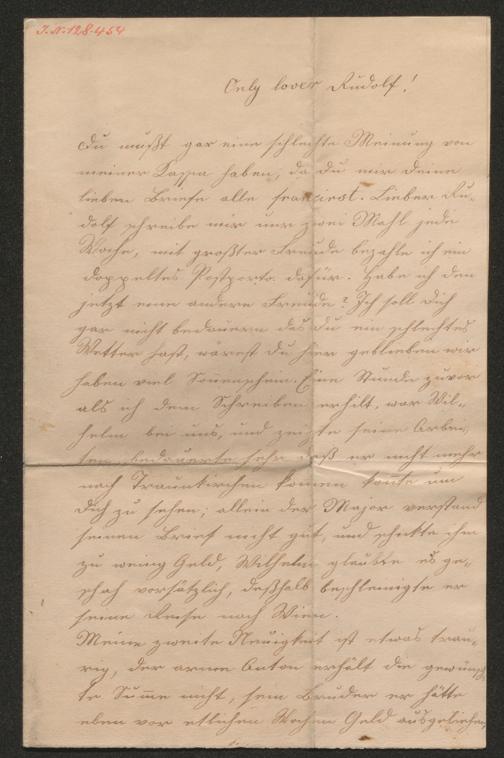 I.N. 128.454
Only lover Rudolf!
Du mußt gar eine schlechte Meinung von
meiner Cassa haben, da du mir deine
lieben Briefe alle francirst. Lieber Ru-
dolf schreibe mir nur zwei Mahl jede
Woche, mit großter Freude bezahle ich ein
doppeltes Postporto dafür. Habe ich den
jetzt eine andere Freude? Ich soll dich
gar nicht bedauern das du ein schlechtes
Wetter hast, wärest du hier geblieben wir
haben viel Sonnenschein. Eine Stunde zuvor
als ich dein Schreiben erhilt, war Wil-
helm bei uns, und zeigte seine Arbei-
ten, bedauerte sehr daß er nicht mehr
nach Traunkirchen komen konte um
dich zu sehen; allein der Major verstand
seinen Brief nicht gut, und schikte ihm
zu wenig Geld, Wilhelm glaubte es ge-
schah vorsätzlich, deßhalb beschleinigte er
seine Reise nach Wien.
Meine zweite Neuigkeit ist etwas trau-
rig, der arme Anton erhält die gewünsch-
te Sume nicht, sein Bruder er hätte
eben vor etlichen Wochen Geld ausgeliehen,